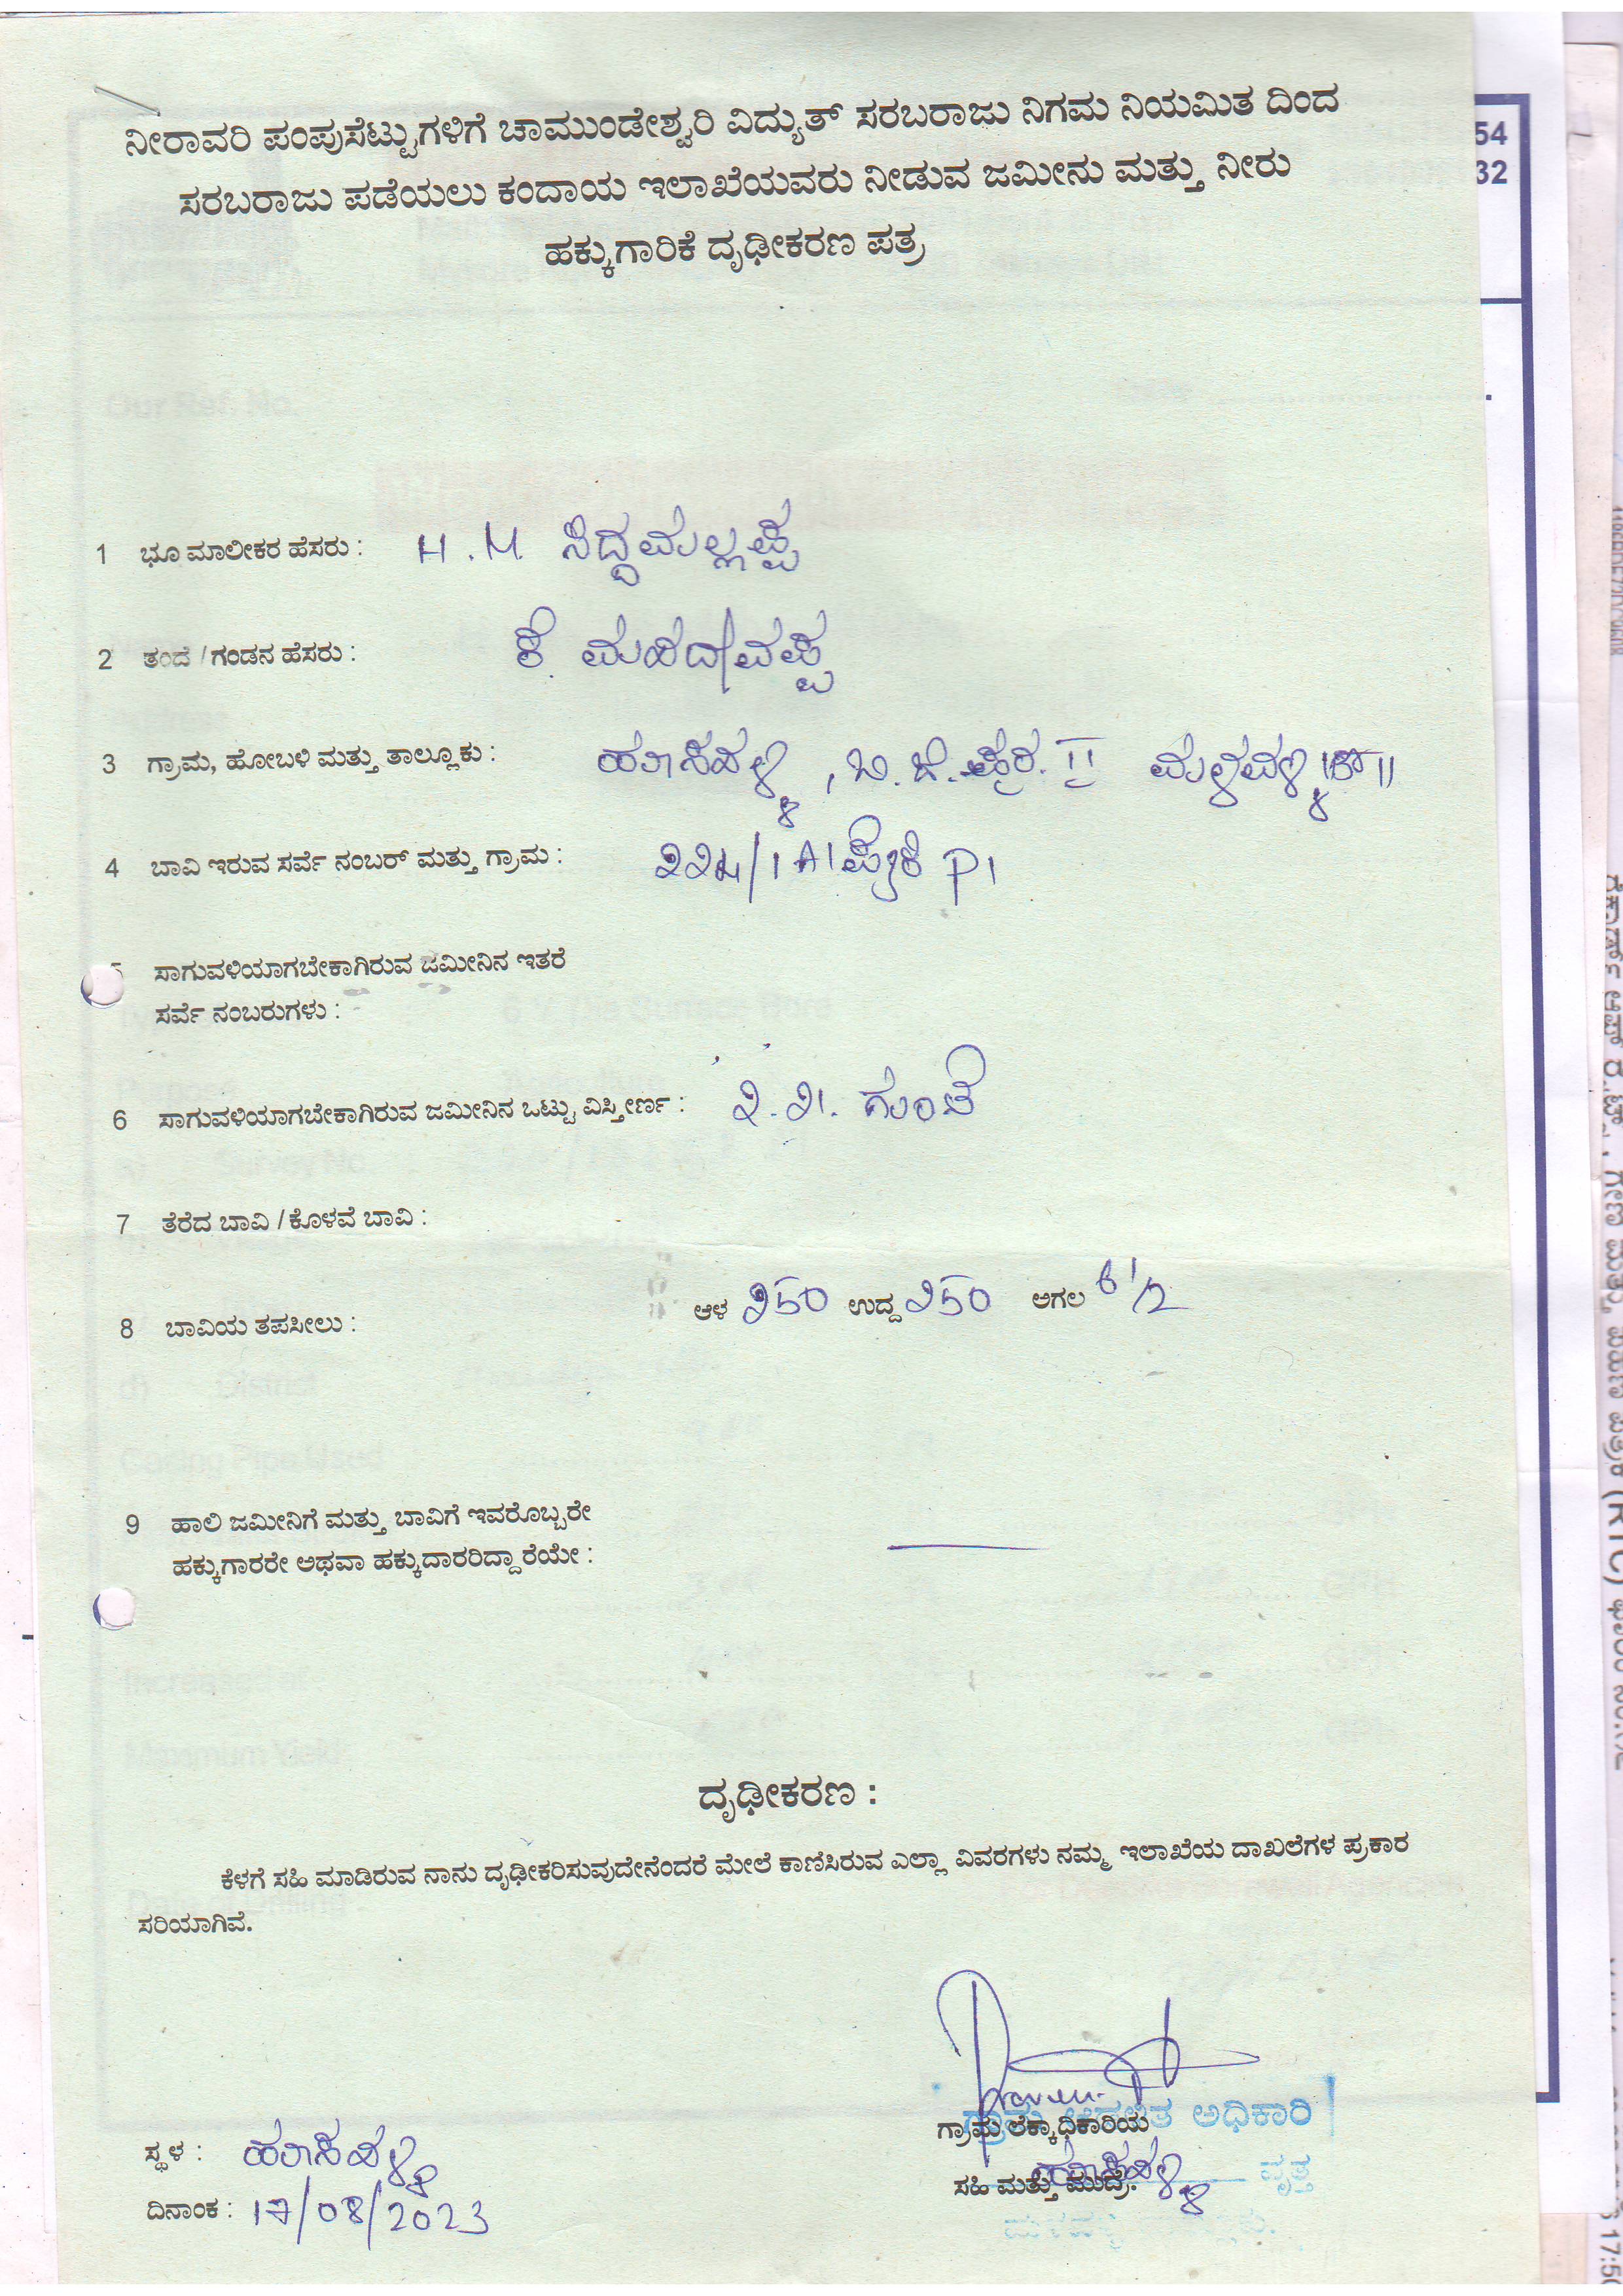 ನೀರಾವರಿ ಪಂಪುಸೆಟ್ಟುಗಳಿಗೆ ಚಾಮುಂಡೇಶ್ವರಿ ವಿದ್ಯುತ್ ಸರಬರಾಜು ನಿಗಮ ನಿಯಮಿತ ದಿಂದ
ಸರಬರಾಜು ಪಡೆಯಲು ಕಂದಾಯ ಇಲಾಖೆಯವರು ನೀಡುವ ಜಮೀನು ಮತ್ತು ನೀರು
ಹಕ್ಕುಗಾರಿಕೆ ದೃಢೀಕರಣ ಪತ್ರ
54
32
1 ಭೂ ಮಾಲೀಕರ ಹೆಸರು : H.M ಸಿದ್ದಮಲ್ಲಪ್ಪ
2 ತಂದೆ / ಗಂಡನ ಹೆಸರು : ಕೆ. ಮಹದೇವಪ್ಪ
3 ಗ್ರಾಮ, ಹೋಬಳಿ ಮತ್ತು ತಾಲ್ಲೂಕು : , ಬಿ.ಜಿ. II ಮಳವಳ್ಳಿ
4 ಬಾವಿ ಇರುವ ಸರ್ವೆ ನಂಬರ್ ಮತ್ತು ಗ್ರಾಮ : 224/1A1ಪೈಕಿ P1
5 ಸಾಗುವಳಿಯಾಗಬೇಕಾಗಿರುವ ಜಮೀನಿನ ಇತರೆ
ಸರ್ವೆ ನಂಬರುಗಳು :
6 ಸಾಗುವಳಿಯಾಗಬೇಕಾಗಿರುವ ಜಮೀನಿನ ಒಟ್ಟು ವಿಸ್ತೀರ್ಣ : 2.21. ಗುಂಟೆ
7 ತೆರೆದ ಬಾವಿ / ಕೊಳವೆ ಬಾವಿ :
8 ಬಾವಿಯ ತಪಸೀಲು : ಆಳ 250 ಉದ್ದ 250 ಅಗಲ 6 1/2
9 ಹಾಲಿ ಜಮೀನಿಗೆ ಮತ್ತು ಬಾವಿಗೆ ಇವರೊಬ್ಬರೇ
ಹಕ್ಕುಗಾರರೇ ಅಥವಾ ಹಕ್ಕುದಾರರಿದ್ದಾರೆಯೇ :
ದೃಢೀಕರಣ :
ಕೆಳಗೆ ಸಹಿ ಮಾಡಿರುವ ನಾನು ದೃಢೀಕರಿಸುವುದೇನೆಂದರೆ ಮೇಲೆ ಕಾಣಿಸಿರುವ ಎಲ್ಲಾ ವಿವರಗಳು ನಮ್ಮ ಇಲಾಖೆಯ ದಾಖಲೆಗಳ ಪ್ರಕಾರ
ಸರಿಯಾಗಿವೆ.
ಗ್ರಾಮ ಆಡಳಿತ ಅಧಿಕಾರಿ
ಗ್ರಾಮ ಲೆಕ್ಕಾಧಿಕಾರಿಯ
ವೃತ್ತ
ಸಹಿ ಮತ್ತು ಮುದ್ರೆ.
ಸ್ಥಳ :
ದಿನಾಂಕ : 17/08/2023